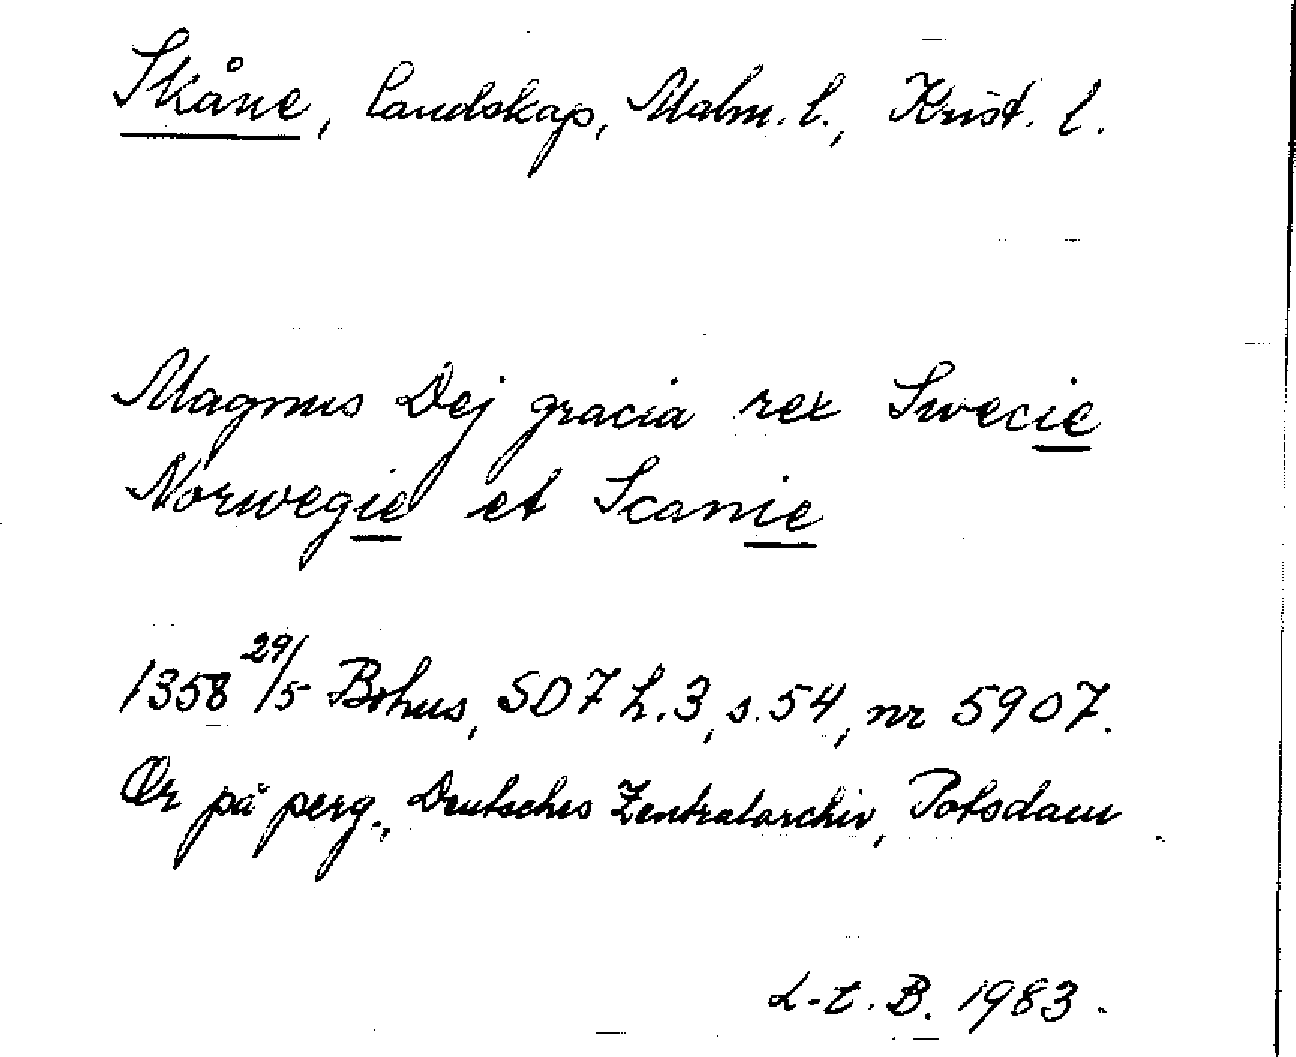 Skåne, landskap, Malm. l., Krist. l.
Magnus Dej gracia rex Swecie
Norwegie et Scanie
1358 29/5 Bohus, SD 7 h.3, s.54, nr 5907.
Or på perg., Deutsches Zentralarchiv, Potsdam
L-t. B. 1983.